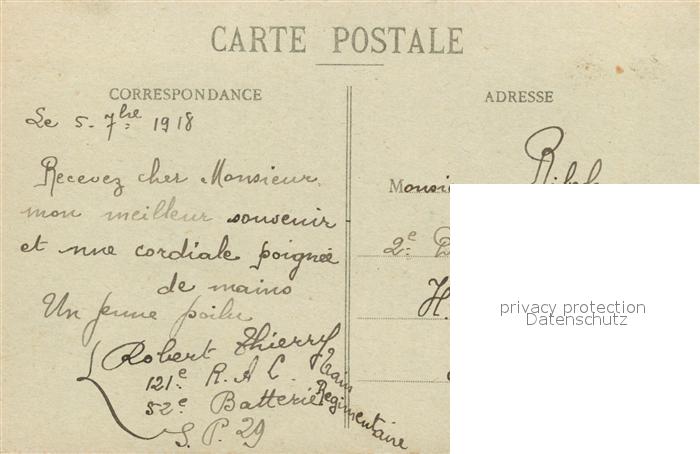 CARTE POSTALE
CORRESPONDANCE
ADRESSE
Le 5-7bre 1918
Recevez cher Monsieur
mon meilleur souvenir
et une cordiale poignée
de mains
Un jeune poilu
Robert Thierry
121e R. A L. Train
52e Batterie Regimentaire
S. P. 29
Monsie
2e
H.
privacy protection
Datenschutz